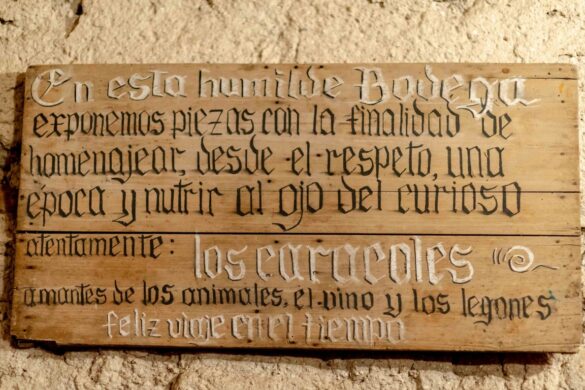 En esta humilde Bodega
exponemos piezas con la finalidad de
homenajear, desde el respeto, una
época y nutrir al ojo del curioso
atentamente: los caracoles
amantes de los animales, el vino y los legones
feliz viaje en el tiempo